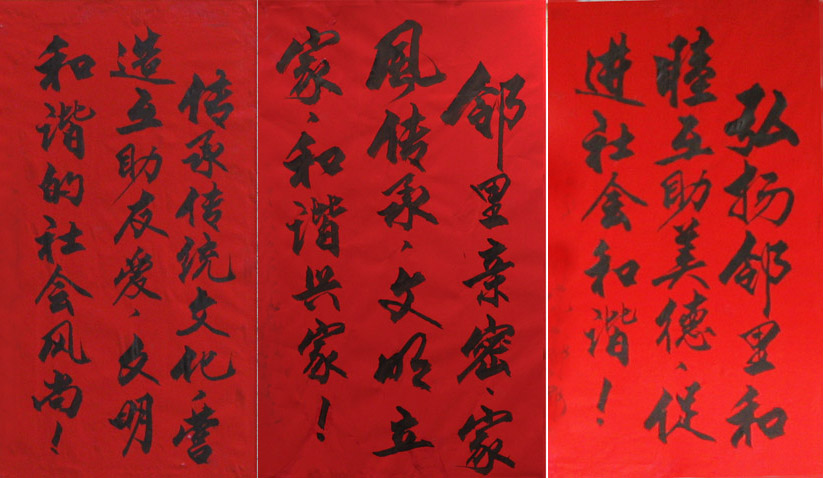 传承传统文化、营
造互助友爱、文明
和谐的社会风尚！
邻里亲密、家
風传承、文明立
家、和谐兴家！
弘扬邻里和
睦互助美德、促
进社会和谐！